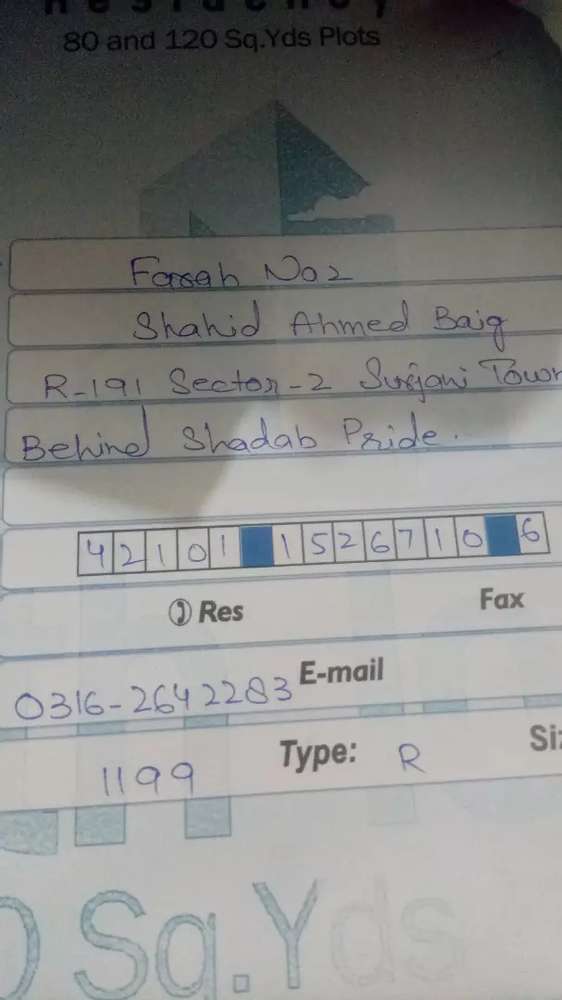 Residency
80 and 120 Sq.Yds Plots
Farah Noz
Shahid Ahmed Baig
R-191 Sector-2 Surjani Town
Behind Shadab Pride.
42101 1526710 6
Res Fax
0316-2642283 E-mail
1199 Type: R Siz
0 Sq.Yds